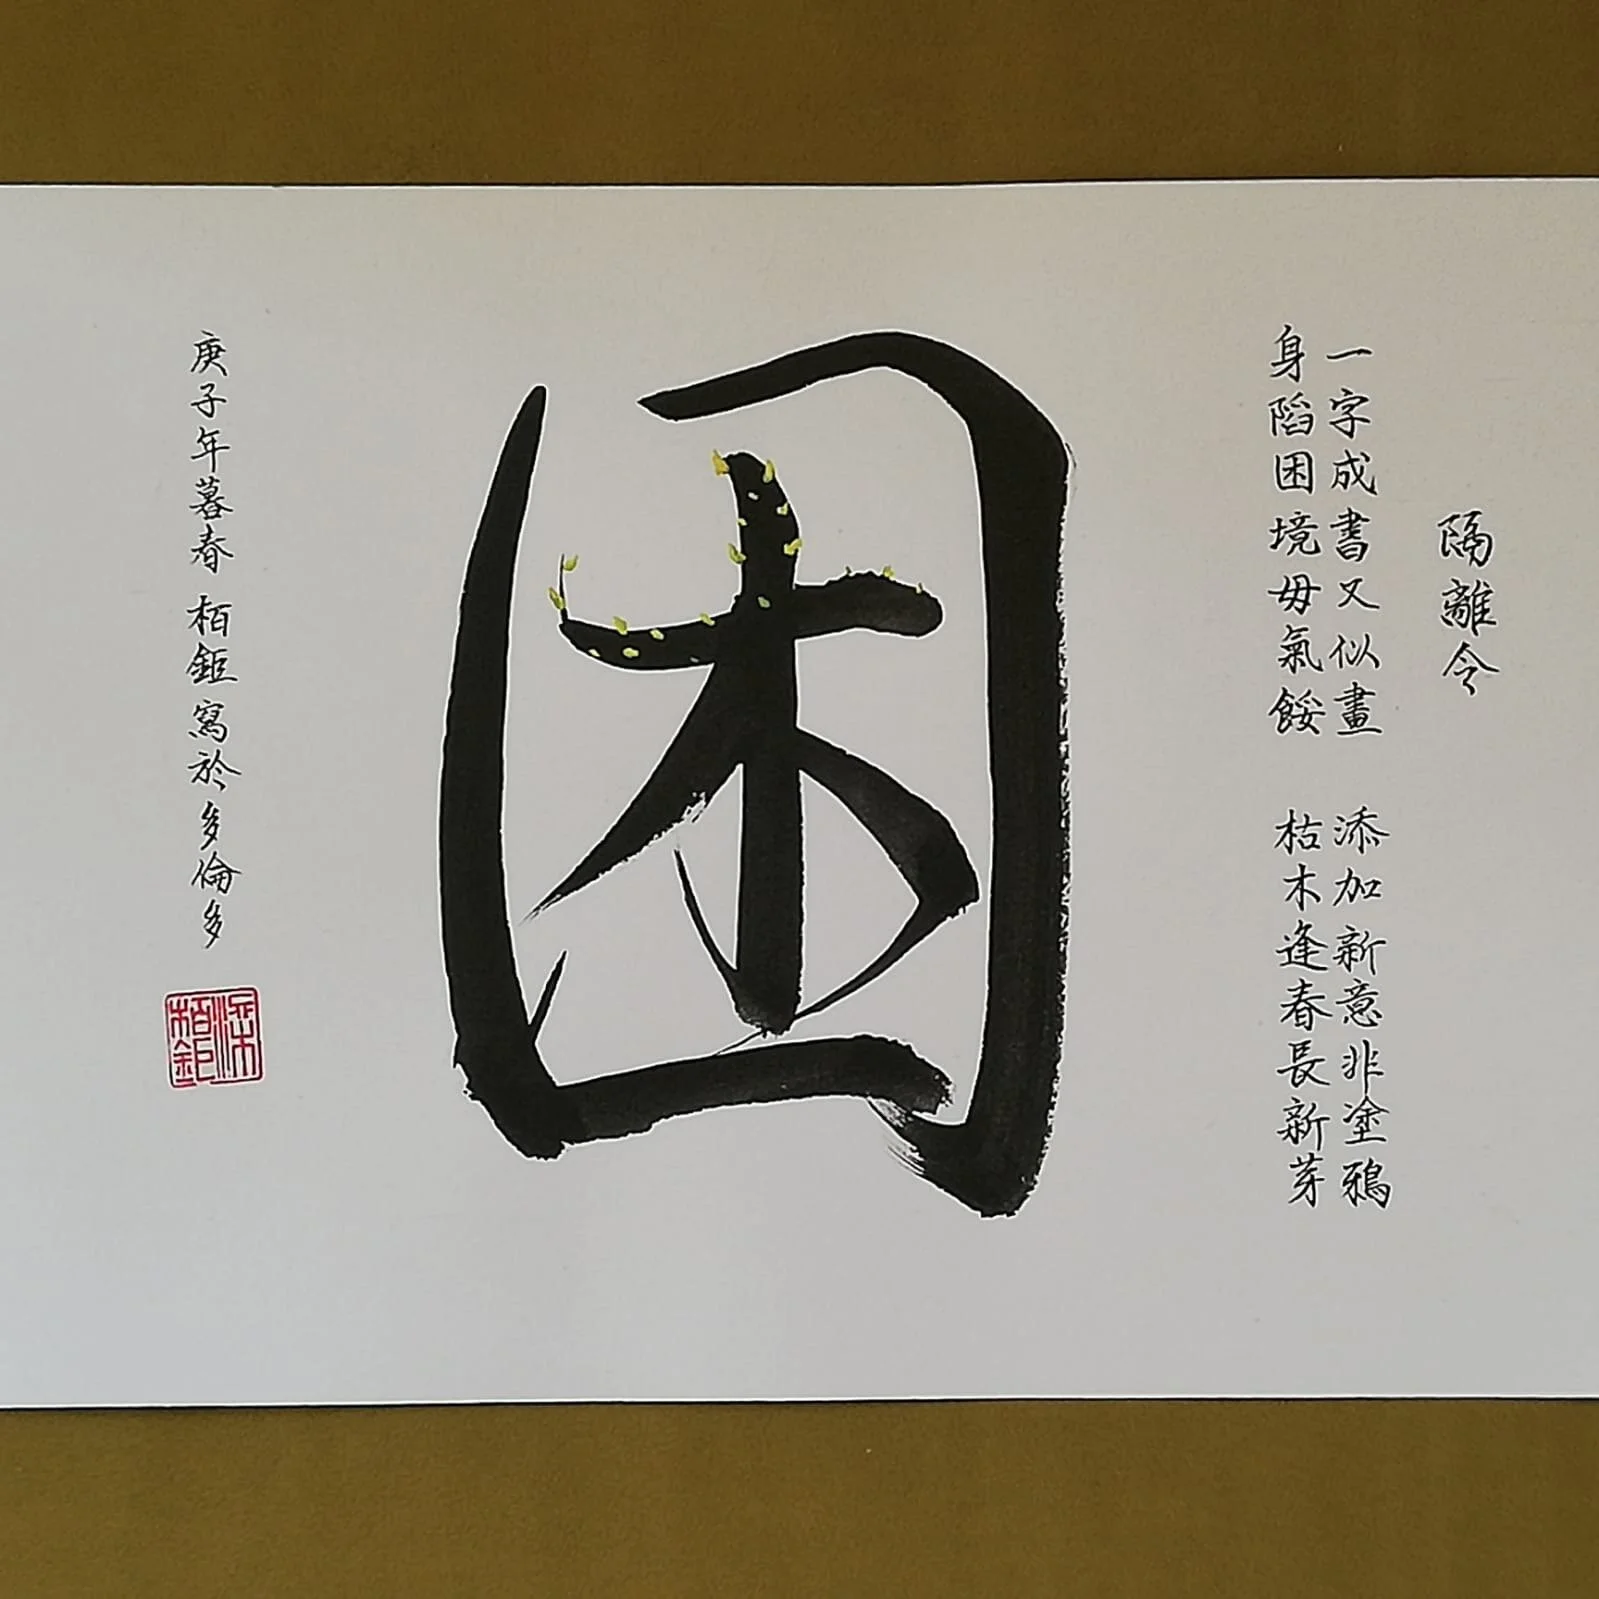 隔離令
一字成書又似畫 添加新意非塗鴉
身陷困境毋氣餒 枯木逢春長新芽
困
庚子年暮春 栢鉅寫於多倫多
梁栢鉅